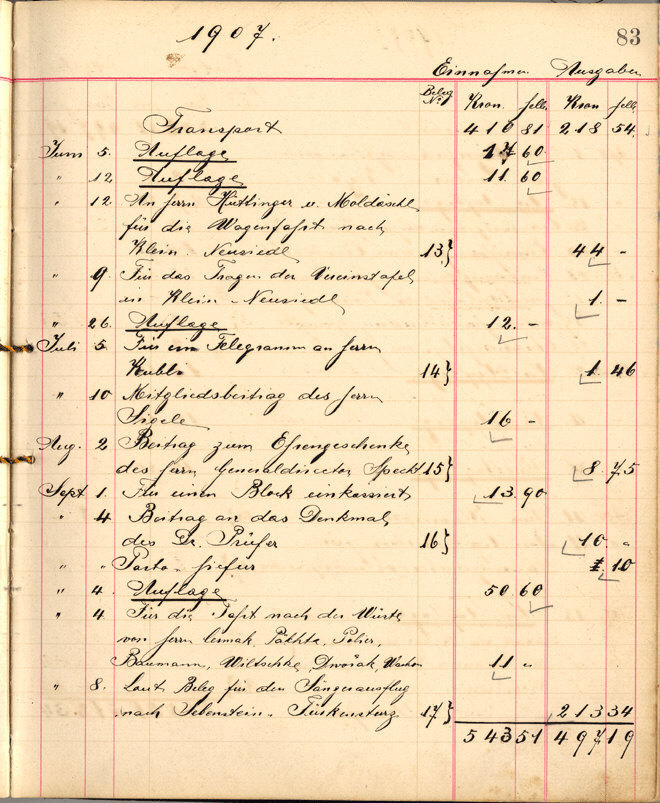 1907.
83
Einnahmen Ausgaben
Beleg No. Kron. hell. Kron hell.
Transport 410 81 218 54
Juni 5. Auflage 17 60
" 12 Auflage 11. 60
" 12. An Herrn Hüttinger u. Moldaschl
für die Wagenfahrt nach
Klein-Neusiedl 13} 44 -
" 9 Für das Tragen der Vereinstafel
in Klein-Neusiedl 1. -
" 26. Auflage 12. -
Juli 5. Für ein Telegramm an Herrn
Kubli 14} 1. 46
" 10 Mitgliedsbeitrag des Herrn
Sigele 16 -
Aug. 2 Beitrag zum Ehrengeschenke
des Herrn Generaldirector Specht 15} 8. 75
Sept 1. Für einen Block einkassiert 13. 90
" 4 Beitrag an das Denkmal
des Dr. Prüfer 16} 10. "
" " Porto 1. 10
" 4. Auflage 50. 60
" 4. Für die Fahrt nach der Würte
von Herrn
Baumann, Wiltschke, Dwořak, 11 "
" 8. Laut Beleg für den Sängerausflug
nach Sebenstein-Türkensturz 17} 213 34
543 51 497 19